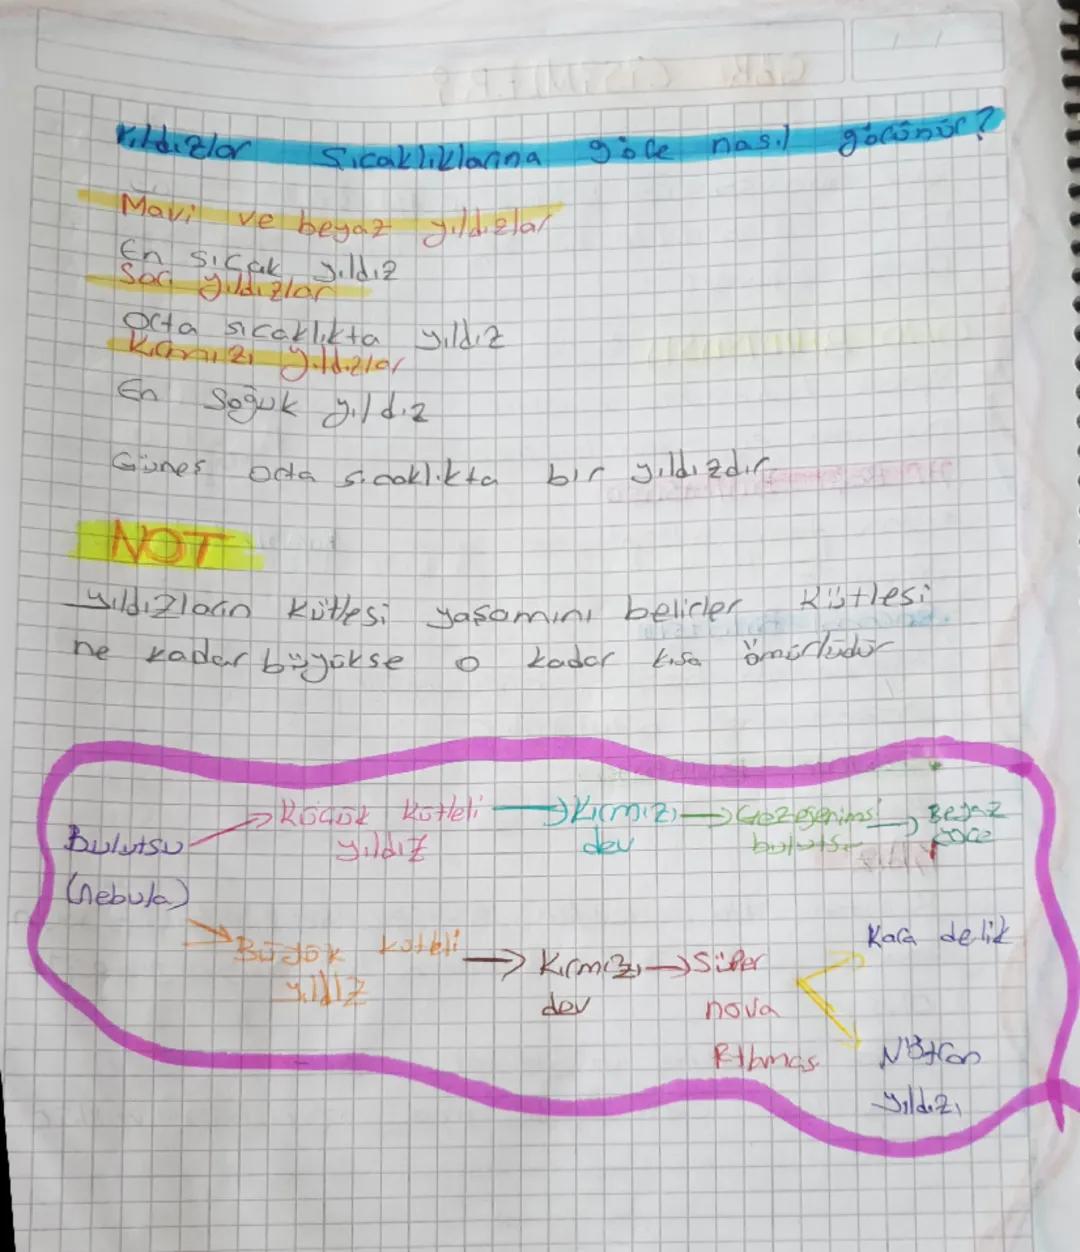 Yıldızlar Sıcaklıklarına göre nasıl görünür?
Mavi ve beyaz yıldızlar
En sıcak yıldız
Sarı yıldızlar
Orta sıcaklıkta yıldız
Kırmızı yıldızlar
En Soğuk yıldız
Güneş orta sıcaklıkta bir yıldızdır
NOT
yıldızların kütlesi yaşamını belirler Kütlesi
ne kadar büyükse o kadar kısa ömürlüdür
Bulutsu
(nebula)
Küçük kütleli
yıldız
Kırmızı
dev
Gezegenimsi
bulutsu
Beyaz
cüce
Büyük kütleli
yıldız
Kırmızı
dev
Süper
nova
Kara delik
Nötron
yıldızı